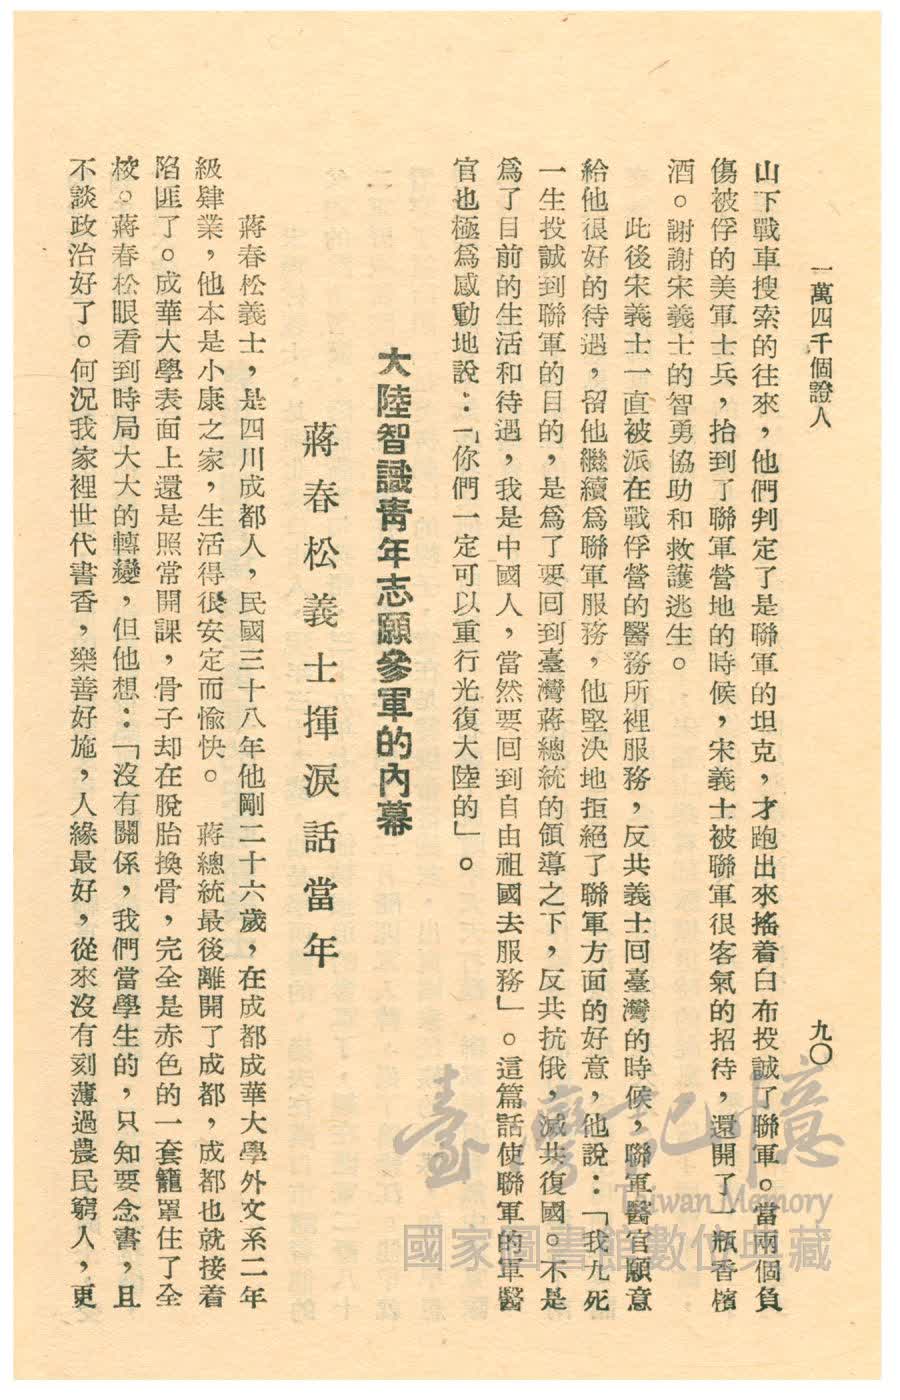 一萬四千個證人
九〇
山下戰車搜索的往來，他們判定了是聯軍的坦克，才跑出來搖着白布投誠了聯軍。當兩個負
傷被俘的美軍士兵，抬到了聯軍營地的時候，宋義士被聯軍很客氣的招待，還開了一瓶香檳
酒。謝謝宋義士的智勇協助和救護逃生。
此後宋義士一直被派在戰俘營的醫務所裡服務，反共義士回臺灣的時候，聯軍醫官願意
給他很好的待遇，留他繼續爲聯軍服務，他堅決地拒絕了聯軍方面的好意，他說：「我九死
一生投誠到聯軍的目的，是爲了要回到臺灣蔣總統的領導之下，反共抗俄，滅共復國。不是
爲了目前的生活和待遇，我是中國人，當然要回到自由祖國去服務」。這篇話使聯軍的軍醫
官也極爲感動地說：「你們一定可以重行光復大陸的」。
大陸智識青年志願參軍的內幕
蔣春松義士揮淚話當年
蔣春松義士，是四川成都人，民國三十八年他剛二十六歲，在成都成華大學外文系二年
級肄業，他本是小康之家，生活得很安定而愉快。　蔣總統最後離開了成都，成都也就接着
陷匪了。成華大學表面上還是照常開課，骨子却在脫胎換骨，完全是赤色的一套籠罩住了全
校。蔣春松眼看到時局大大的轉變，但他想：「沒有關係，我們當學生的，只知要念書，且
不談政治好了。何況我家裡世代書香，樂善好施，人緣最好，從來沒有刻薄過農民窮人，更
臺灣記憶
Taiwan Memory
國家圖書館數位典藏